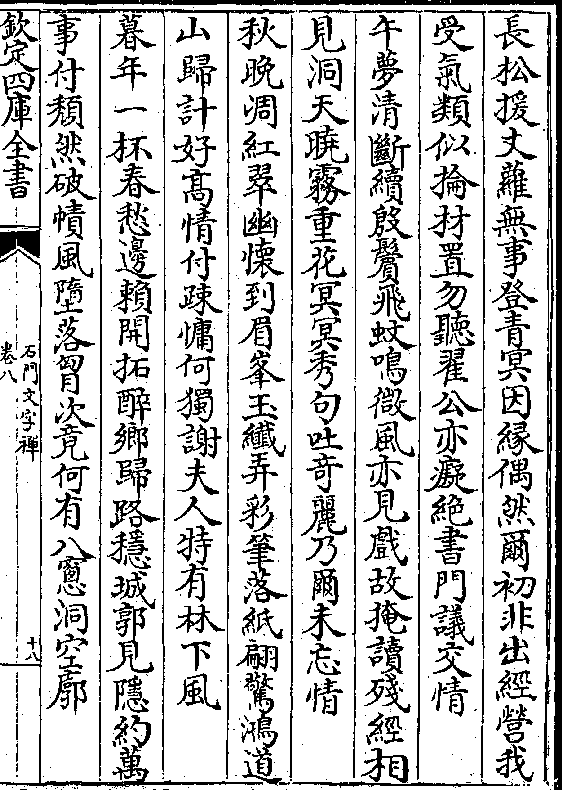 長松援丈蘿無事登青冥因緣偶然爾初非出經營我
受氣類似掄材置勿聽翟公亦癡絶書門議交情
午夢清斷續殷鬢飛蚊鳴微風亦見戲故掩讀殘經相
見洞天曉霧重花冥冥秀句吐奇麗乃爾未忘情
秋晚凋紅翠幽懷到眉峯玉纖弄彩筆落紙翩驚鴻道
山歸計好髙情付疎慵何獨謝夫人特有林下風
暮年一抔春愁邊賴開拓醉鄉歸路穩城郭見隱約萬
事付頽然破幘風墮落胷次竟何有八窻洞空廓
欽定四庫全書
石門文字禪
卷八
十八